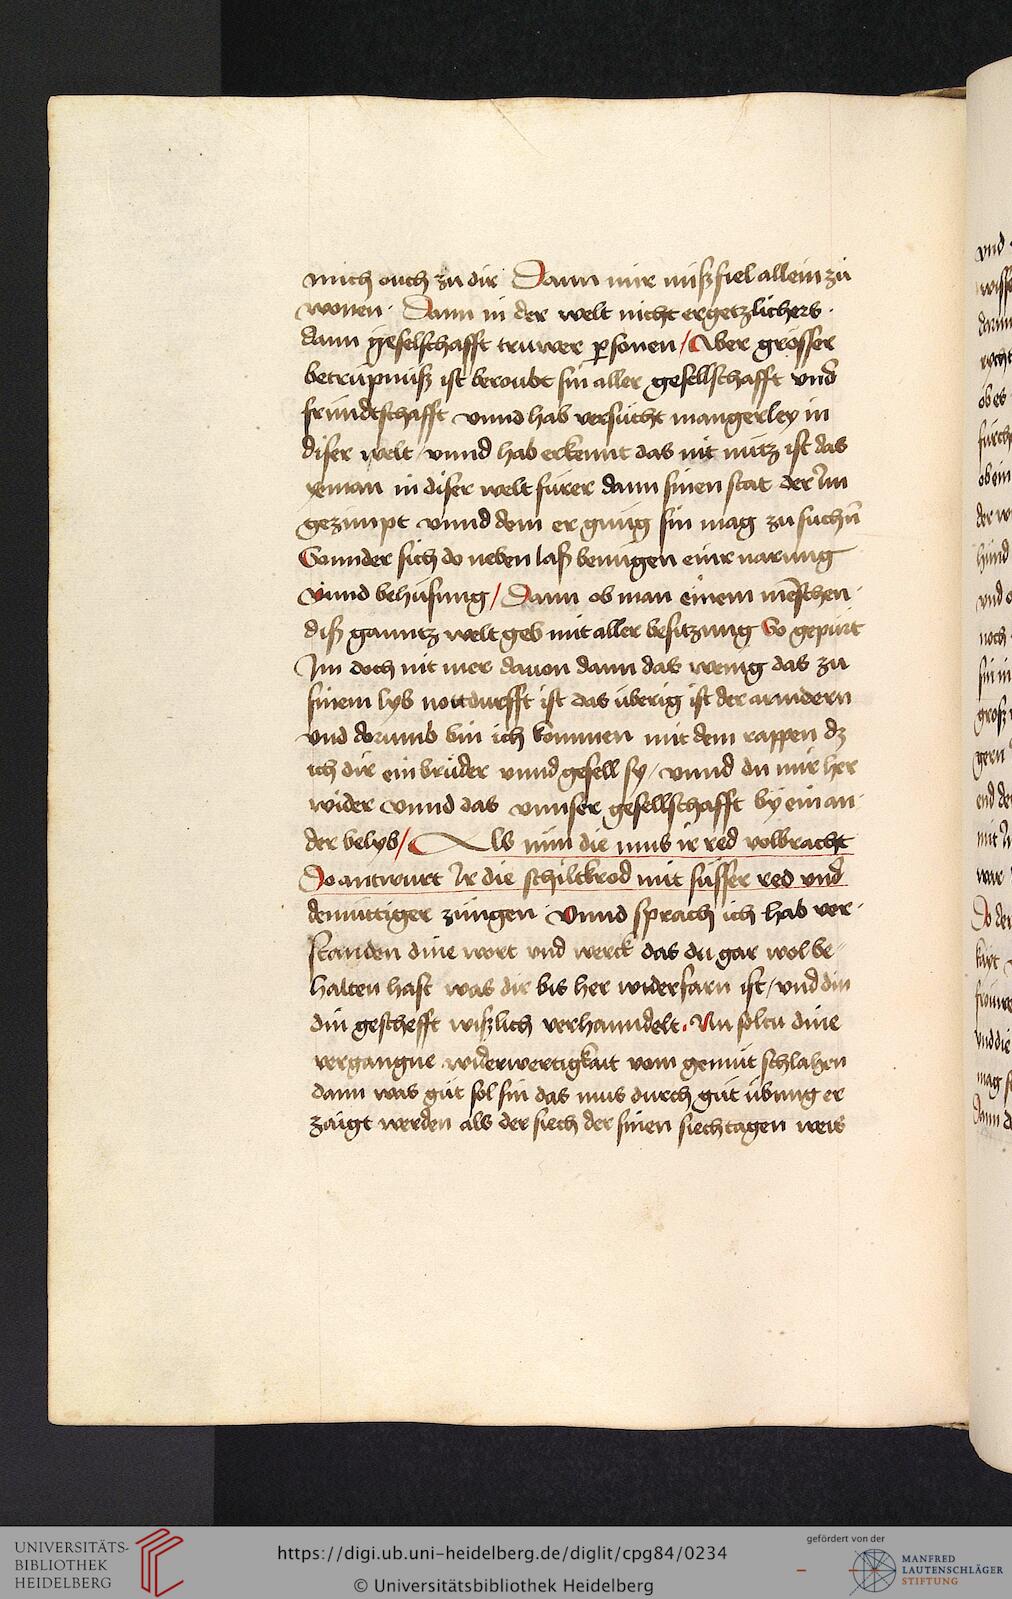 mich ouch zů dir Dann mir mißfiel allein zů
wonen · Dann in der welt nicht ergetzlichers ·
dann geselschafft truwer psonen / Aber grosser
betrüpnüß ist beroubt sin aller gesellschafft vnd
fründtschafft vnnd hab versůcht mangerley in
diser welt / vnnd hab erkennt das nit nütz ist das
yeman in diser welt fürer dann sinen stat der Im
gezimpt vnnd dem er gnüg sin mag zu suchn̄
Sonnder sich do neben laß benügen einr narung
vnnd behusung / Dann ob man einem mēschen ·
diß ganntz welt geb mit aller besitzung So gepürt
Im doch nit mer dauon dann das wenig das zů
sinem lyb nottdurfft ist das überig ist der anndern
vnd dorumb bin ich kommen mit dem rappen dz
ich dir ein brůder vnnd gesell sy / vnnd du mir her
wider vnnd das vnnser gesellschafft by ein an ·
der belyb / Als nun die mus ir red volbracht
Do antwurt Ir die schiltkrod mit süsser red vnd
demüttiger zungen · Vnnd sprach ich hab ver ·
standen dine wort vnd werck das du gar wol be-
halten hast was dir bis her widerfarn ist / vnd din
din geschefft wißlich verhanndelt . Nu soltu dine
vergangne widerwertigkait vom gemüt schlahen
dann was gůt sol sin das mus durch gůt übung er
zaigt werden als der siech der sinen siechtagen weis
vnd
ob es
ob ein
der
hund
vnd
noch
sin in
groß
gern
end
mit
war
Do der
vnd die
mag
Dann
UNIVERSITÄTS-
BIBLIOTHEK
HEIDELBERG
https://digi.ub.uni-heidelberg.de/diglit/cpg84/0234
© Universitätsbibliothek Heidelberg
gefördert von der
MANFRED
LAUTENSCHLÄGER
STIFTUNG